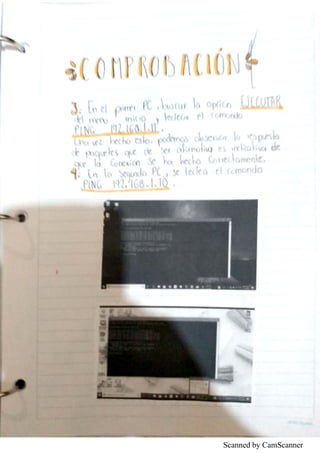 COMPROBACIÓN
3. En el primer PC, buscar la opción EJECUTAR
del menú inicio y teclear el comando
PING 192.168.1.11.
Una vez hecho esto, podemos observar la respuesta
de paquetes que de ser afirmativa es indicativa de
que la conexión se ha hecho correctamente.
4. En la segunda PC, se teclea el comando
PING 192.168.1.10.
Scanned by CamScanner